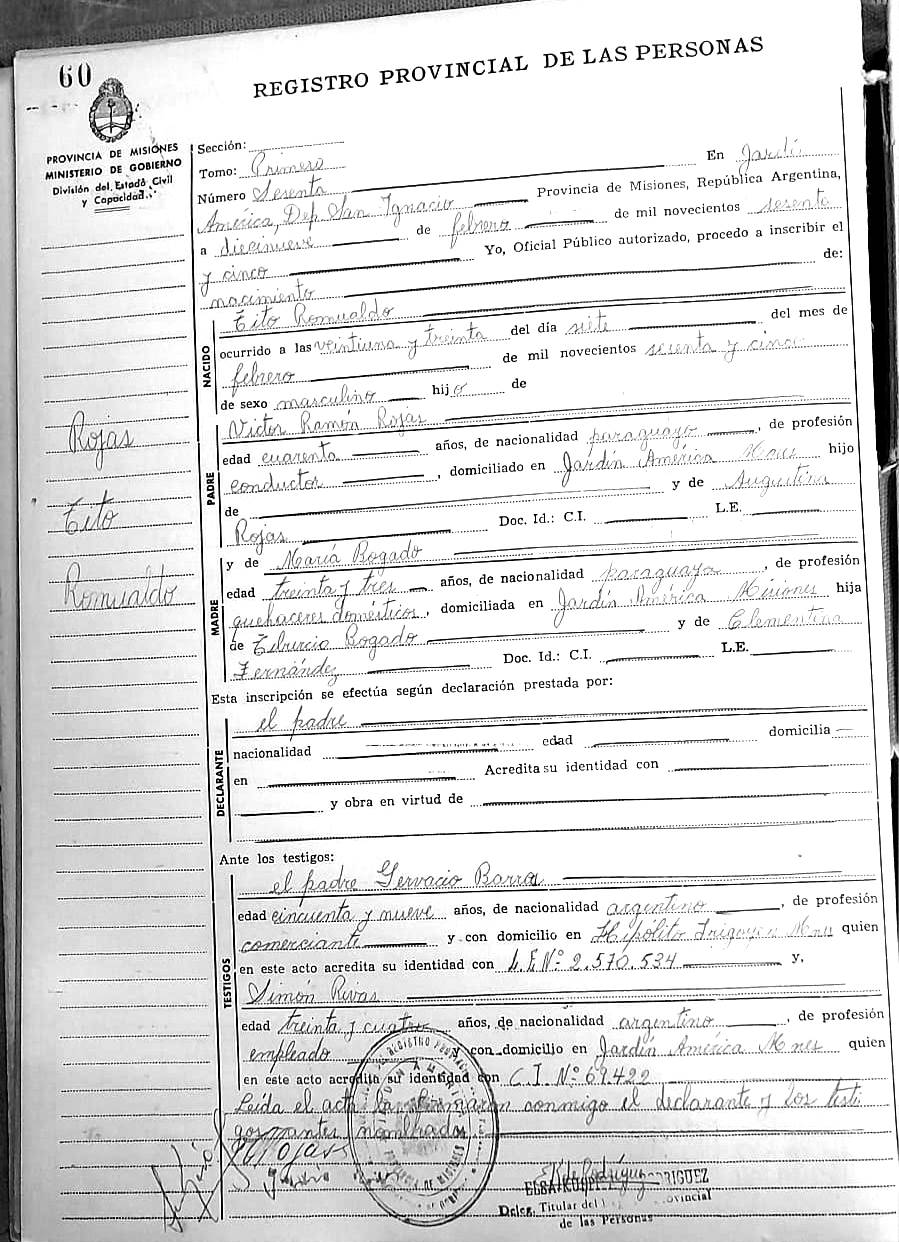 60
REGISTRO PROVINCIAL DE LAS PERSONAS
PROVINCIA DE MISIONES
MINISTERIO DE GOBIERNO
División del Estado Civil
y Capacidad
Sección:
Tomo: Primero En Jardín
Número Sesenta
América, Dep. San Ignacio Provincia de Misiones, República Argentina,
a diecinueve de febrero de mil novecientos sesenta
y cinco Yo, Oficial Público autorizado, procedo a inscribir el
nacimiento de:
NACIDO
Tito Romualdo
ocurrido a las veintiuna y treinta del día siete del mes de
febrero de mil novecientos sesenta y cinco
de sexo masculino hijo de
PADRE
Victor Ramón Rojas
edad cuarenta años, de nacionalidad paraguayo, de profesión
conductor, domiciliado en Jardín América Mnes hijo
de y de Augustina
Rojas Doc. Id.: C.I. L.E.
MADRE
y de María Bogado
edad treinta y tres años, de nacionalidad paraguaya, de profesión
quehaceres domésticos, domiciliada en Jardín América Misiones hija
de Tiburcio Bogado y de Clementina
Fernández Doc. Id.: C.I. L.E.
Rojas
Tito
Romualdo
Esta inscripción se efectúa según declaración prestada por:
DECLARANTE
el padre
nacionalidad edad domicilia
en Acredita su identidad con
y obra en virtud de
Ante los testigos:
TESTIGOS
el padre Gervacio Barros
edad cincuenta y nueve años, de nacionalidad argentino, de profesión
comerciante y con domicilio en Hipólito Irigoyen Mnes quien
en este acto acredita su identidad con L.E Nº 2.570.534 y,
Simón Rivas
edad treinta y cuatro años, de nacionalidad argentino, de profesión
empleado y con domicilio en Jardín América Mnes quien
en este acto acredita su identidad con C.I. Nº 69.422
Leída el acta la firmaron conmigo el declarante y los testi
gos antes nombrados
Rojas
REGISTRO
DE MISIONES
ELSA RODRIGUEZ
Deleg. Titular del Provincial
de las Personas